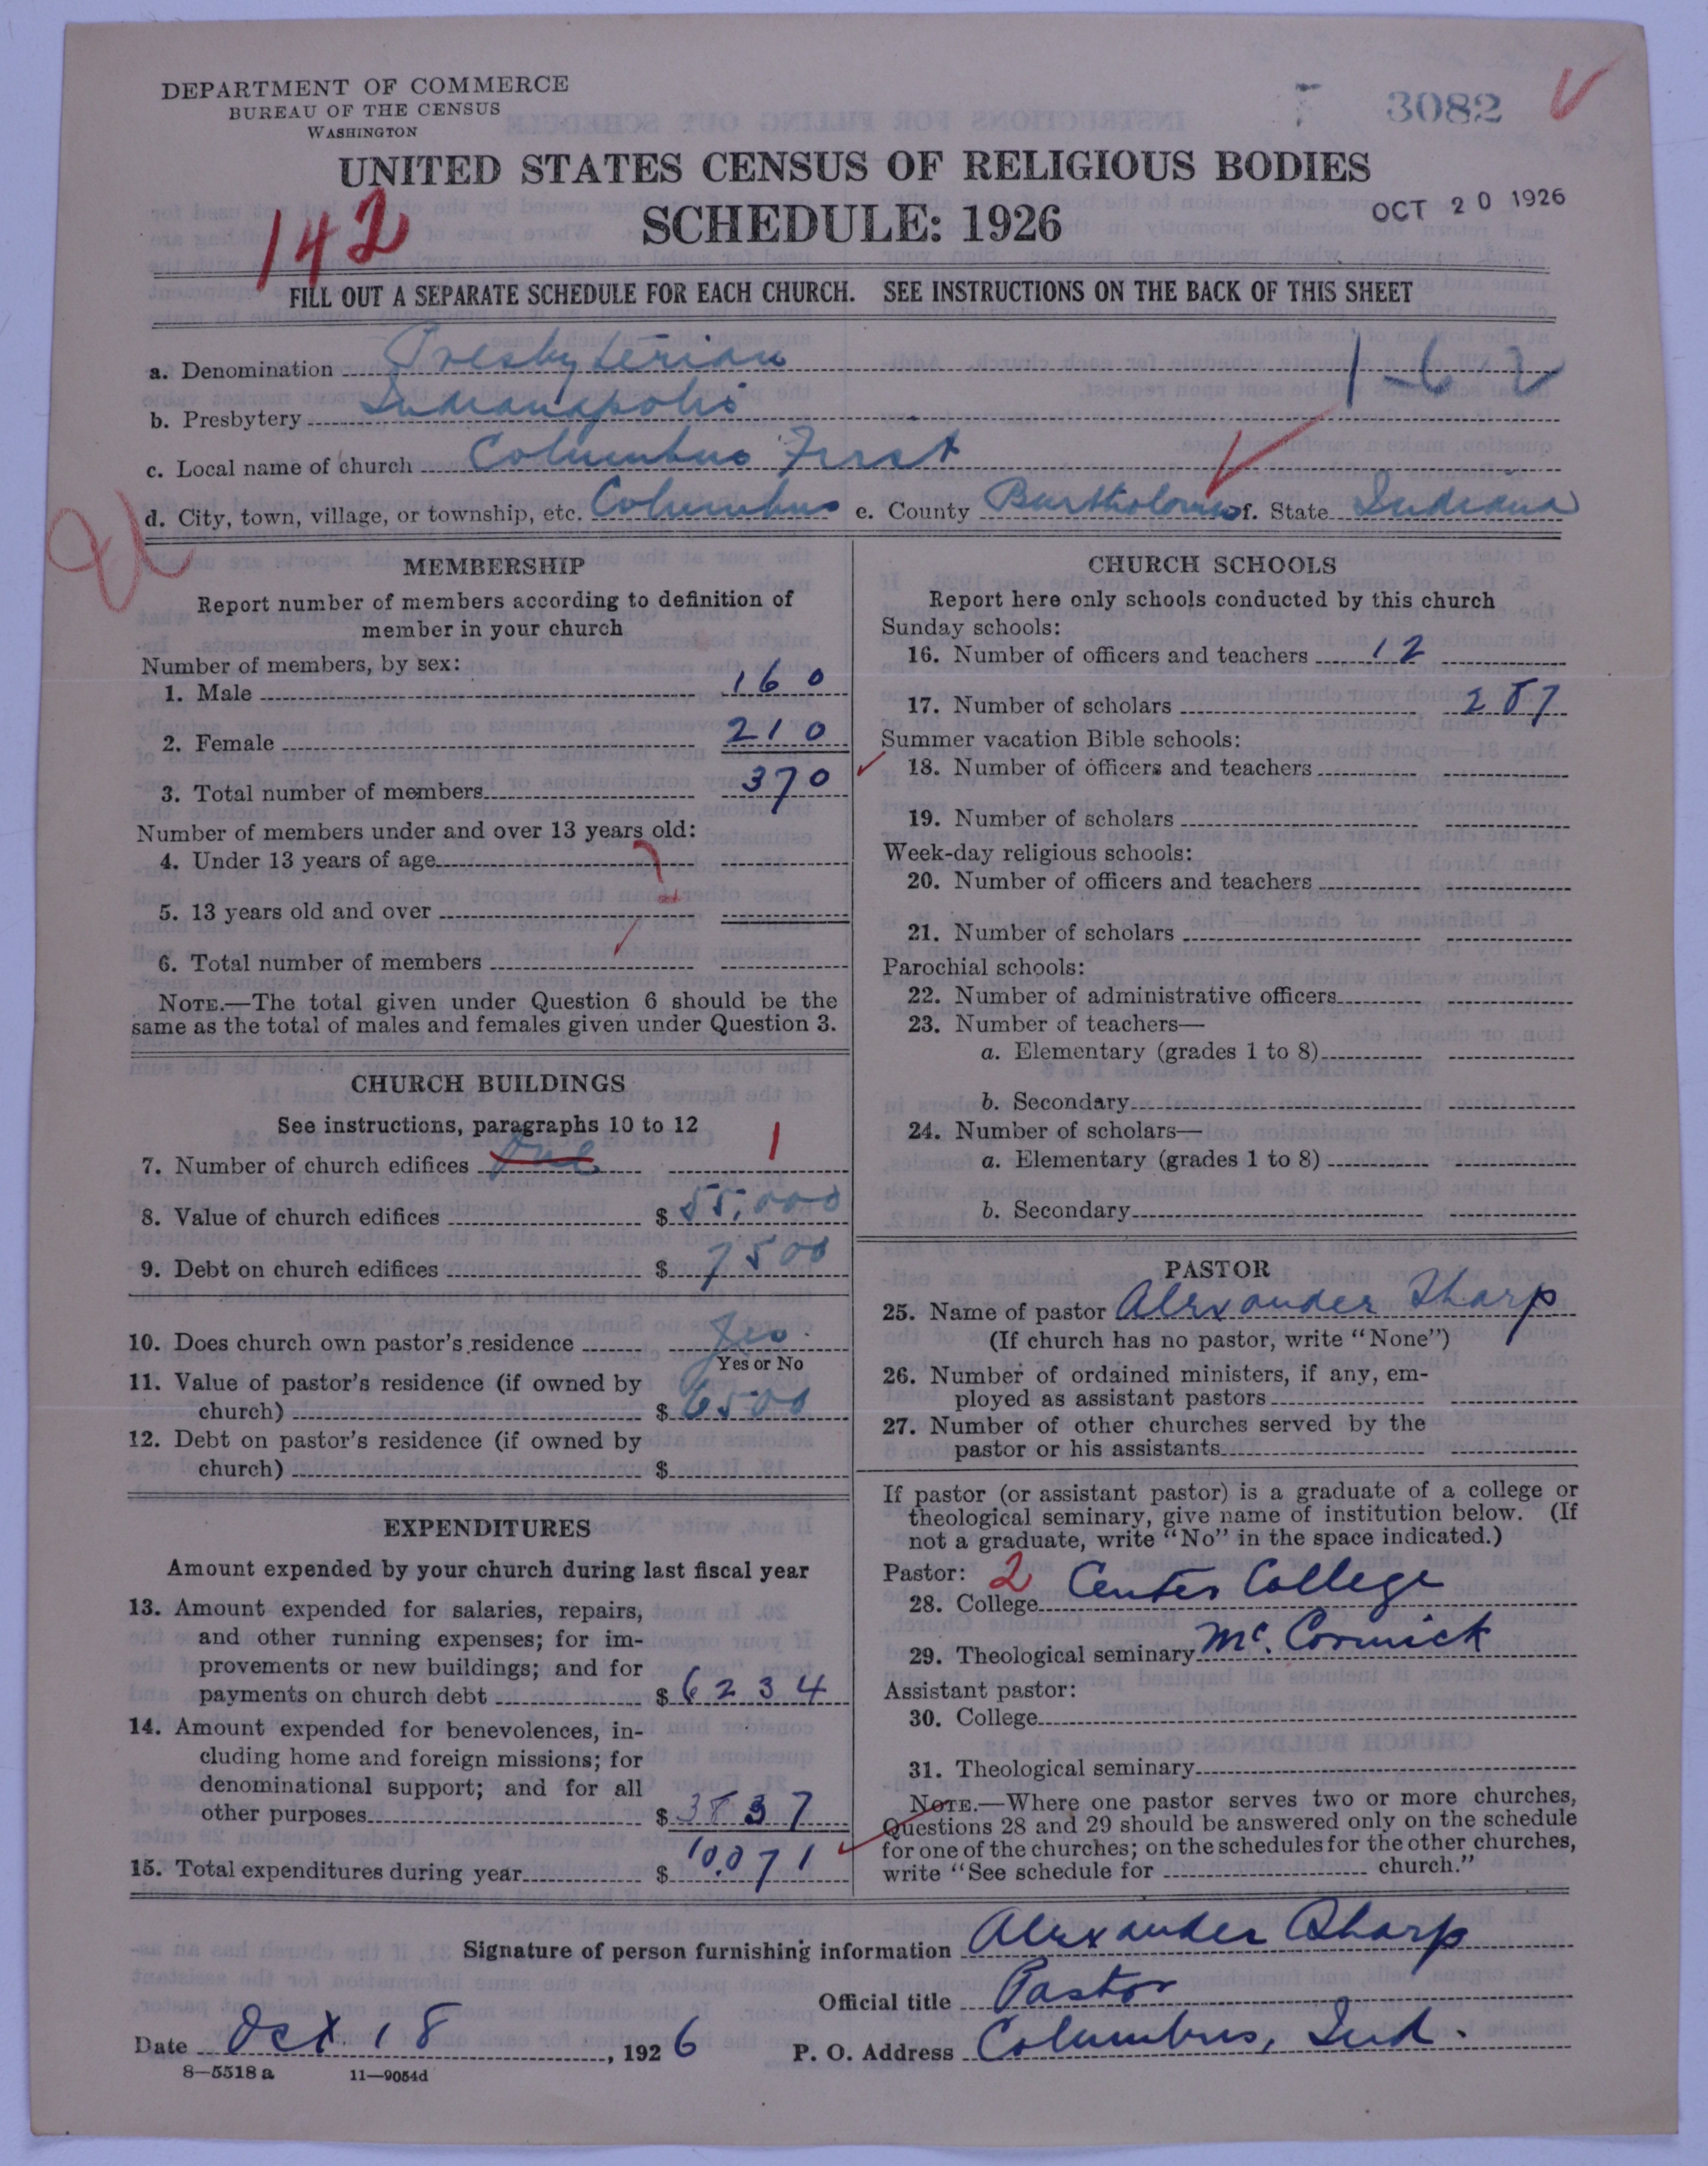 DEPARTMENT OF COMMERCE
BUREAU OF THE CENSUS
WASHINGTON
3082
UNITED STATES CENSUS OF RELIGIOUS BODIES
SCHEDULE: 1926
OCT 20 1926
142
FILL OUT A SEPARATE SCHEDULE FOR EACH CHURCH. SEE INSTRUCTIONS ON THE BACK OF THIS SHEET
a. Denomination Presbyterian 1-62
b. Presbytery Indianapolis
c. Local name of church Columbus First
d. City, town, village, or township, etc. Columbus e. County Bartholomew f. State Indiana
MEMBERSHIP
Report number of members according to definition of
member in your church
Number of members, by sex:
1. Male 160
2. Female 210
3. Total number of members 370
Number of members under and over 13 years old:
4. Under 13 years of age
5. 13 years old and over
6. Total number of members
NOTE.—The total given under Question 6 should be the
same as the total of males and females given under Question 3.
CHURCH BUILDINGS
See instructions, paragraphs 10 to 12
7. Number of church edifices One 1
8. Value of church edifices $ 55,000
9. Debt on church edifices $ 7500
10. Does church own pastor's residence Yes.
Yes or No
11. Value of pastor's residence (if owned by
church) $ 6500
12. Debt on pastor's residence (if owned by
church) $
EXPENDITURES
Amount expended by your church during last fiscal year
13. Amount expended for salaries, repairs,
and other running expenses; for im-
provements or new buildings; and for
payments on church debt $ 6234
14. Amount expended for benevolences, in-
cluding home and foreign missions; for
denominational support; and for all
other purposes $ 3837
15. Total expenditures during year $ 10,071
CHURCH SCHOOLS
Report here only schools conducted by this church
Sunday schools:
16. Number of officers and teachers 12
17. Number of scholars 287
Summer vacation Bible schools:
18. Number of officers and teachers
19. Number of scholars
Week-day religious schools:
20. Number of officers and teachers
21. Number of scholars
Parochial schools:
22. Number of administrative officers
23. Number of teachers—
a. Elementary (grades 1 to 8)
b. Secondary
24. Number of scholars—
a. Elementary (grades 1 to 8)
b. Secondary
PASTOR
25. Name of pastor Alexander Sharp
(If church has no pastor, write "None")
26. Number of ordained ministers, if any, em-
ployed as assistant pastors
27. Number of other churches served by the
pastor or his assistants
If pastor (or assistant pastor) is a graduate of a college or
theological seminary, give name of institution below. (If
not a graduate, write "No" in the space indicated.)
Pastor: 2
28. College Center College
29. Theological seminary McCormick
Assistant pastor:
30. College
31. Theological seminary
NOTE.—Where one pastor serves two or more churches,
Questions 28 and 29 should be answered only on the schedule
for one of the churches; on the schedules for the other churches,
write "See schedule for church."
Signature of person furnishing information Alexander Sharp
Official title Pastor
Date Oct 18, 1926 P. O. Address Columbus, Ind.
8—5518a 11—9054d